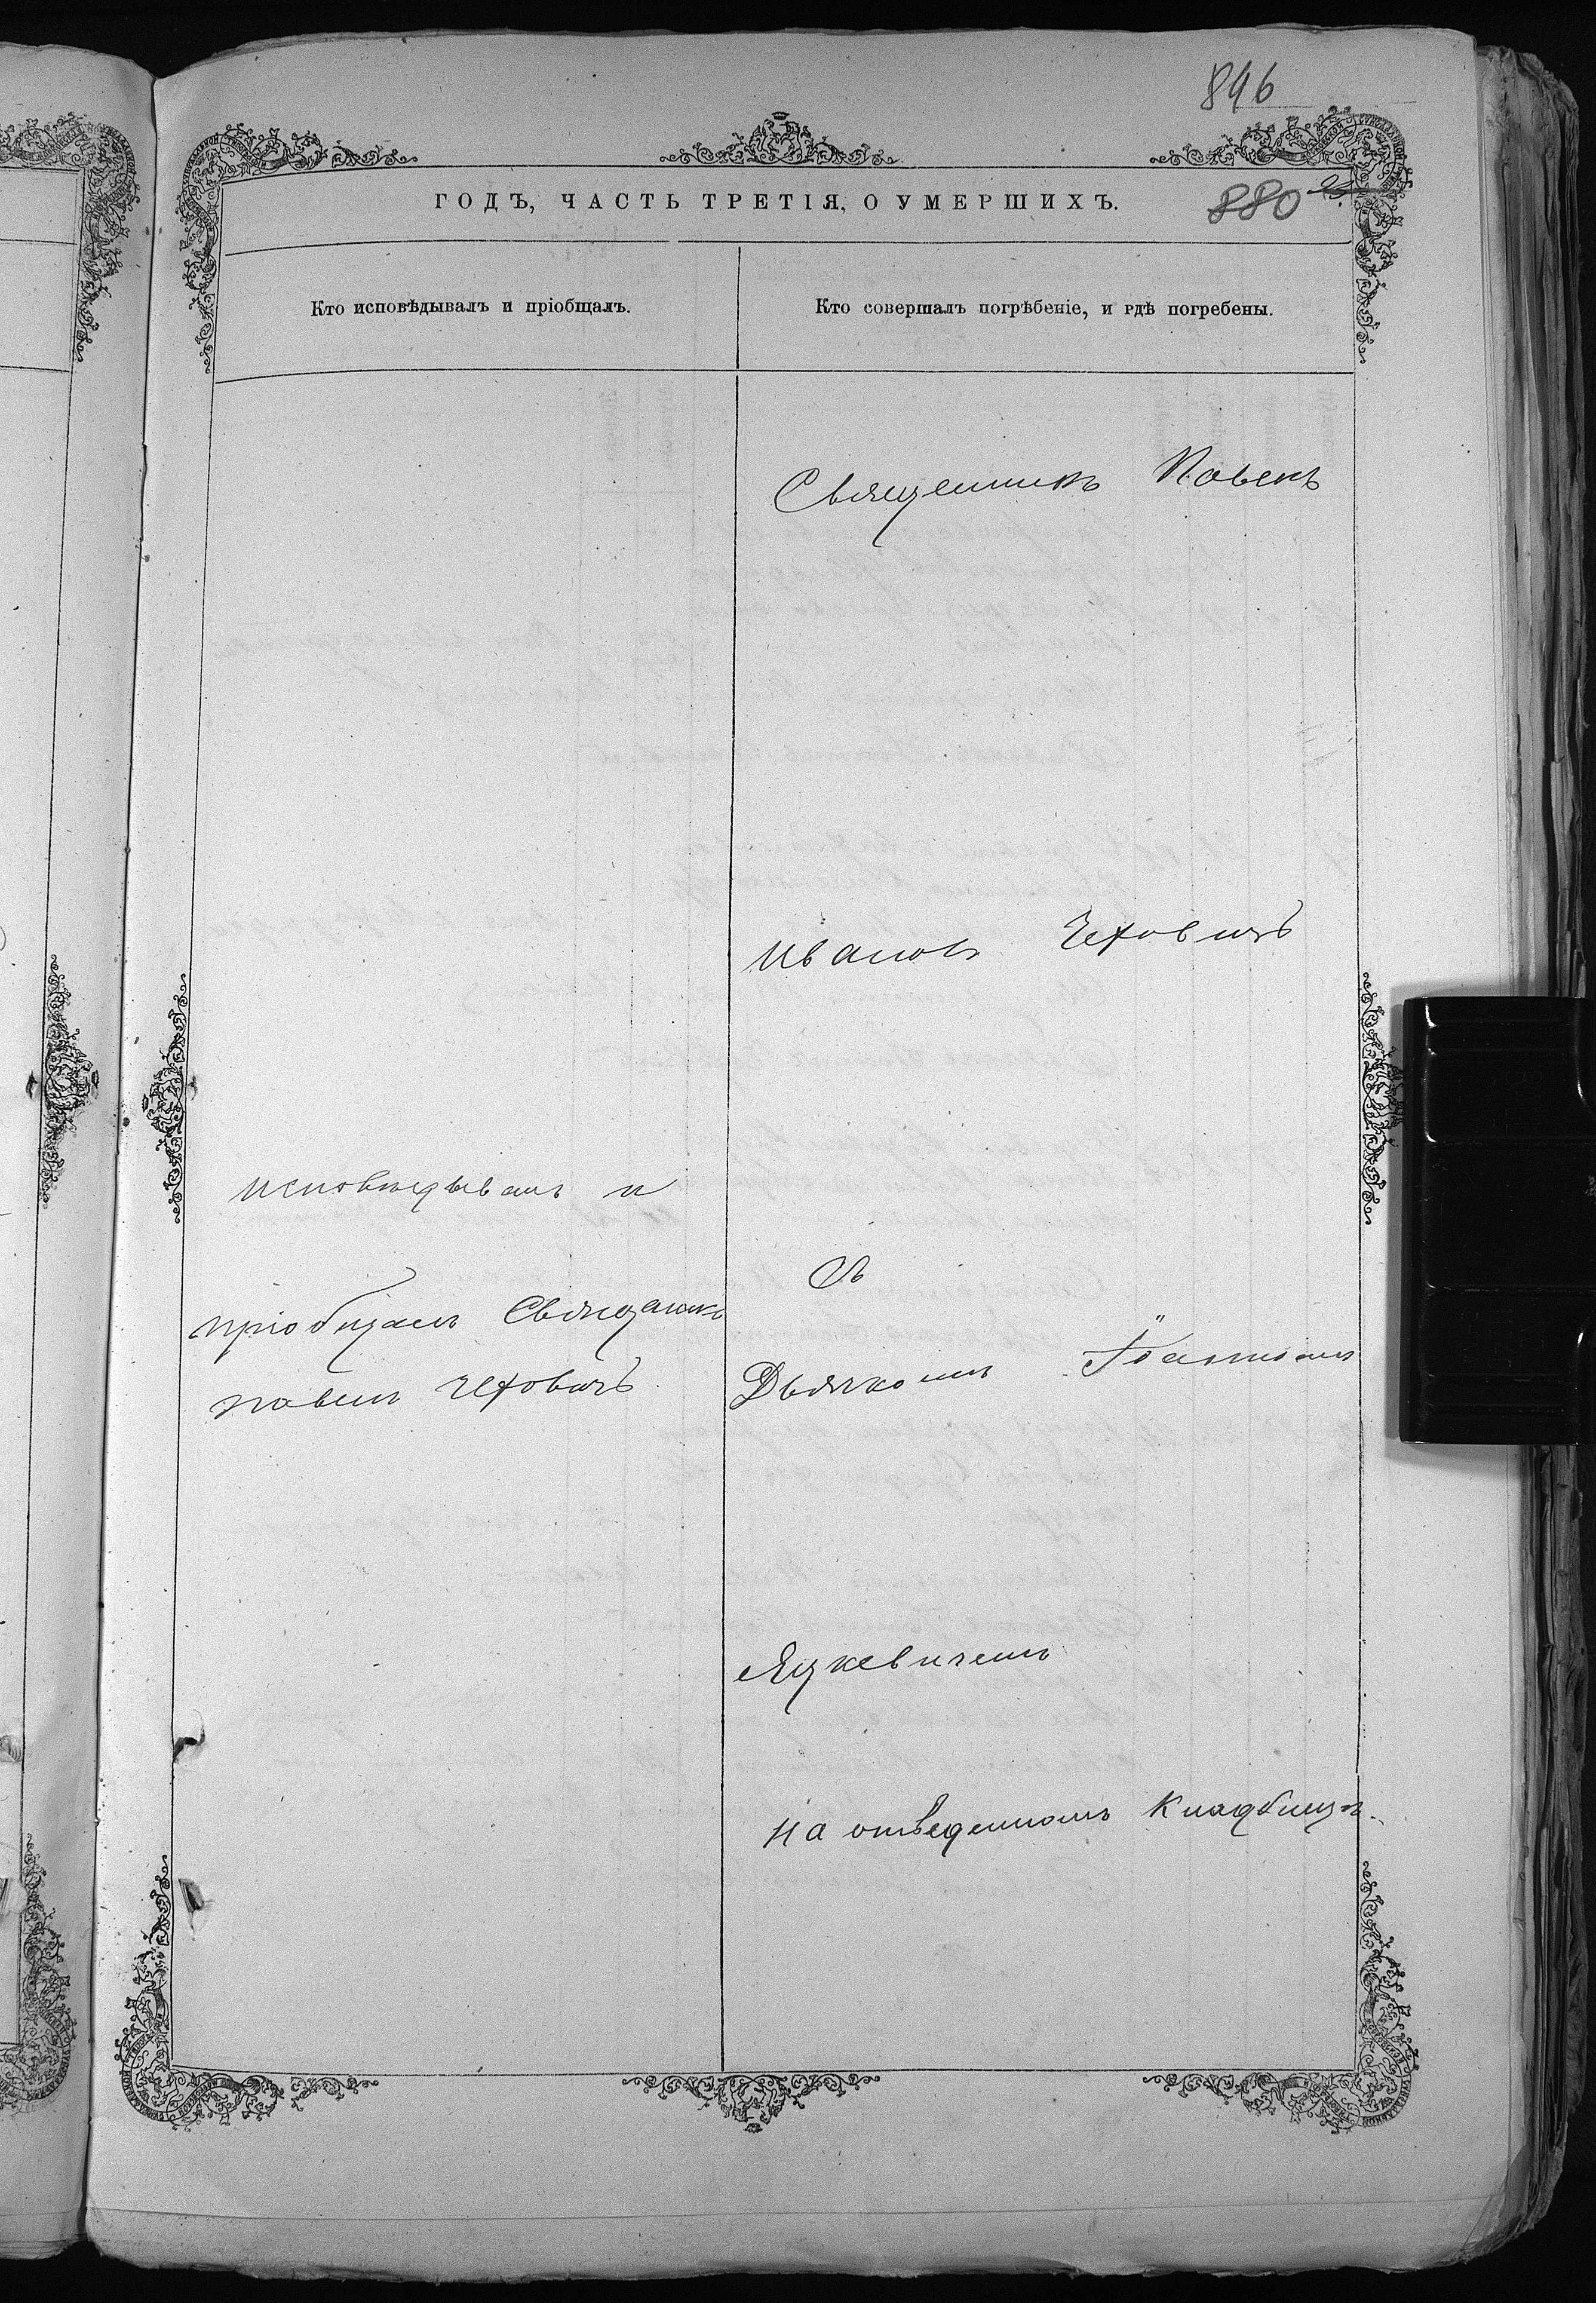 896
ГОДЪ, ЧАСТЬ ТРЕТІЯ, О УМЕРШИХЪ.
880
Кто исповѣдывалъ и пріобщалъ.
Кто совершалъ погрѣбеніе, и гдѣ погребены.
Священникъ Павелъ
Ивановъ Чеховичъ
исповѣдывалъ и
пріобщалъ Священникъ
Павелъ Чеховичъ
Съ
Дьячкомъ Іоанномъ
Яцкевичемъ
На отведенномъ Кладбищѣ.